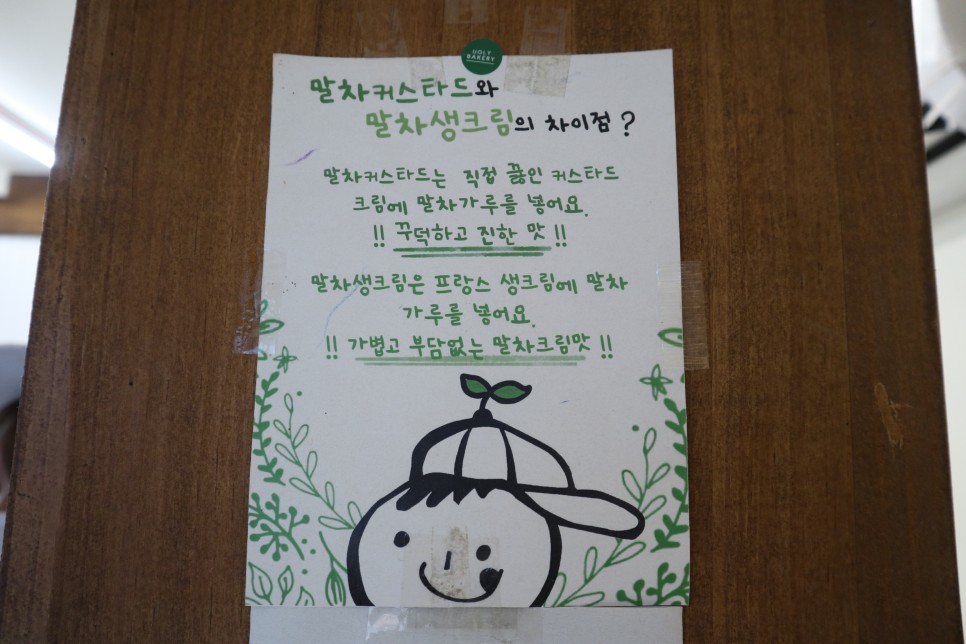 UGLY
BAKERY
말차커스타드와
말차생크림의 차이점?
말차커스타드는 직접 끓인 커스타드
크림에 말차가루를 넣어요.
!! 꾸덕하고 진한 맛 !!
말차생크림은 프랑스 생크림에 말차
가루를 넣어요.
!! 가볍고 부담없는 말차크림맛 !!